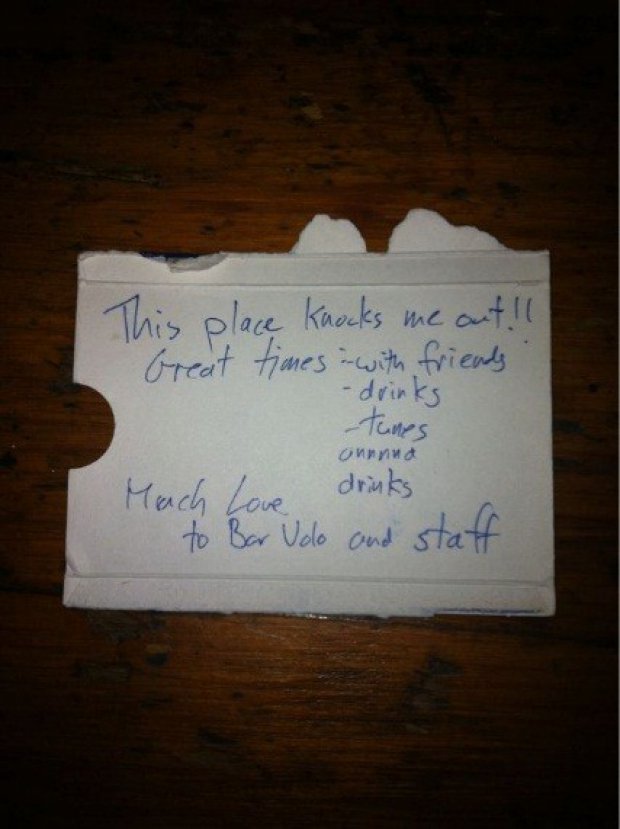 This place knocks me out!!
Great times :-with friends
-drinks
-tunes
annnnd
drinks
Much Love
to Bar Volo and staff